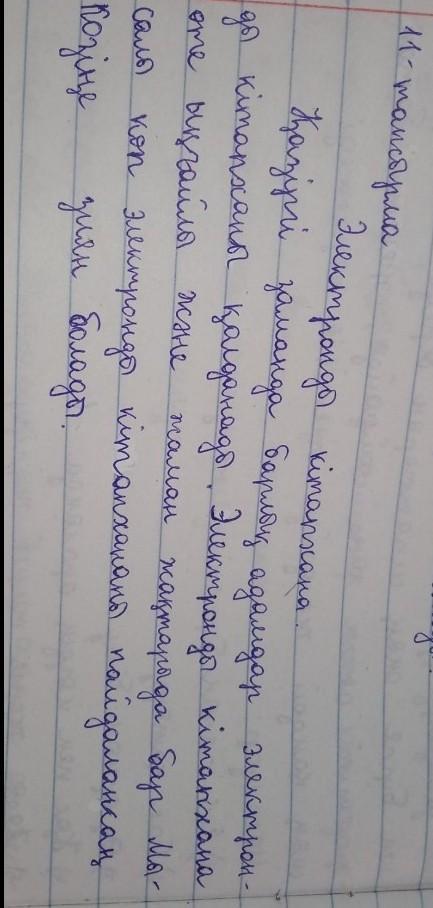 11-тапсырма
Электронды кітапхана.
Қазіргі заманда барлық адамдар электрон-
ды кітапханы қалданады. Электронды кітапхана
өте ыңғайлы және жаман жақтарыда бар Мы-
салы көп электронды кітапхананы пайдаланхан
көзіңе зиян болады.